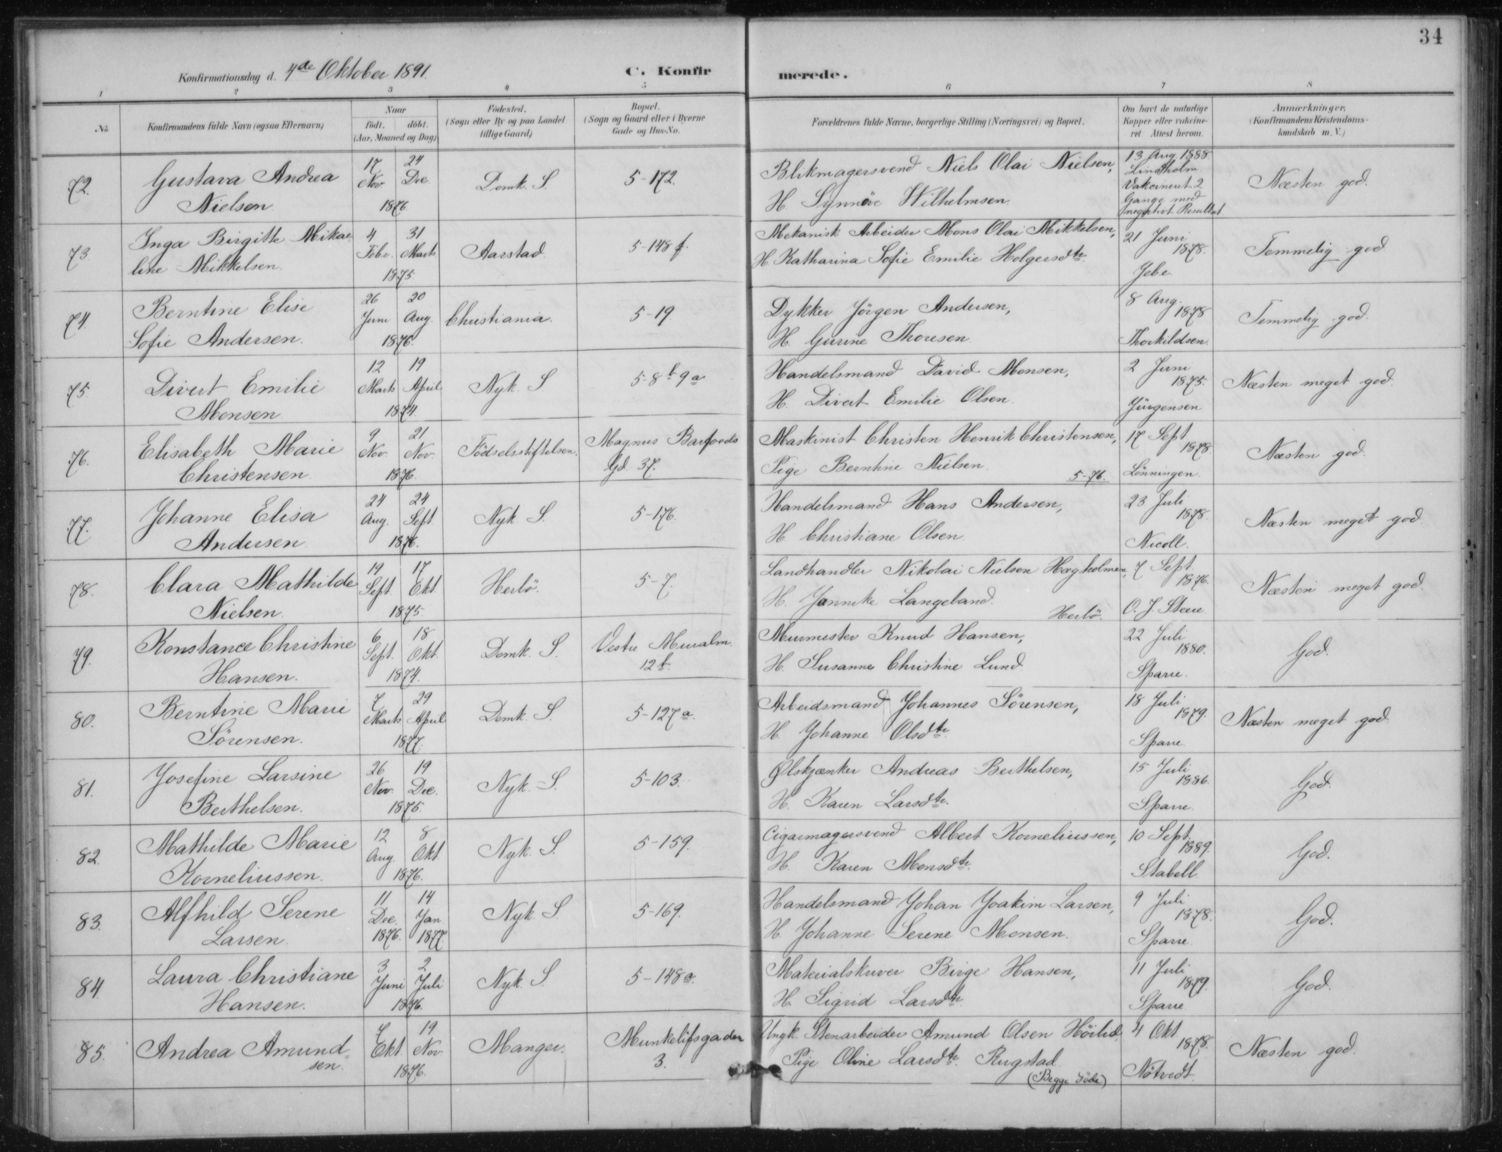 34
Konfirmationsdag d. 4de Oktober 1891.
C. Konfirmerede.
1 2 3 4 5 6 7 8
No. Konfirmandens fulde Navn (ogsaa Efternavn) Naar født. døbt. (Aar, Maaned og Dag) Fødested. (Sogn eller By og paa Landet tillige Gaard) Bopæl. (Sogn og Gaard eller i Byerne Gade og Hus-No. Forældrenes fulde Navne, borgerlige Stilling (Næringsvei) og Bopæl. Om havt de naturlige Kopper eller vaccineret. Attest herom. Anmærkninger. (Konfirmandens Kristendomskundskab m. V.)
72. Gustava Andrea Nielsen 17 Nov 24 Dec 1876 Domk. S 5-172. Blikmagersvend Niels Olai Nielsen,
H. Synnøve Wilhelmsen. 13 Aug 1888 Lindholm Vakcineret 2 Gange med negativt Resultat Næsten god.
73 Inga Birgitte Mikaeline Mikkelsen. 4 Febr. 31 Marts 1875 Aarstad. 5-148 f. Mekanisk Arbeider Mons Olai Mikkelsen,
H. Katharina Sofie Emilie Holgersdtr. 21 Juni 1878. Jebe Temmelig god
74. Berntine Elise Sofie Andersen. 26 Juni 20 Aug 1876. Christiania. 5-19 Dykker Jørgen Andersen,
H. Gurine Thoresen. 8 Aug. 1878 Thorkildsen. Temmelig god.
75. Divert Emilie Monsen. 12 Marts 19 April 1874. Nyk S 5-8b 9a Handelsmand David Monsen,
H. Divert Emilie Olsen. 2 Juni 1875. Jürgensen Næsten meget god.
76. Elisabeth Marie Christensen 9 Nov. 21 Nov. 1876. Fødselsstiftelsen. Magnus Barfoeds Gd 37. Maskinist Christen Henrik Christensen,
Pige Berntine Nielsen. 5-76. 17 Sept 1878 Lönningen. Næsten god.
77. Johanne Elisa Andersen 24 Aug. 24 Sept 1876. Nyk S. 5-176. Handelsmand Hans Andersen,
H. Christiane Olsen 23 Juli 1878. Nicoll. Næsten meget god
78. Clara Mathilde Nielsen. 19 Sept 17 Okt. 1875 Herlö. 5-7 Landhandler Nikolai Nielsen Hægholmen,
H. Jannike Langeland. Herlö. 7 Sept. 1876. O. J. Steen Næsten meget god
79. Konstance Christine Hansen. 6 Sept. 18 Okt. 1874. Domk. S. Vestre Muralm. 12 b. Murmester Knud Hansen,
H. Susanne Christine Lund. 22 Juli 1880. Sparre. God.
80. Berntine Marie Sørensen. 7 Marts 29 April 1877. Domk. S. 5-127a. Arbeidsmand Johannes Sørensen,
H. Johanne Olsdtr. 18 Juli 1879. Sparre Næsten meget god
81. Josefine Larsine Berthelsen. 26 Nov. 19 Dec. 1875 Nyk. S. 5-103. Ølskjænker Andreas Berthelsen,
H. Karen Larsdtr. 15 Juli 1886. Sparre. God.
82. Mathilde Marie Korneliussen. 12 Aug 8 Okt 1876. Nyk. S. 5-159. Cigarmagersvend Albert Korneliussen,
H. Karen Monsdtr. 10 Sept. 1889 Stabell God.
83. Alfhild Serene Larsen. 11 Dec. 1876. 14 Jan 1877 Nyk S 5-169. Handelsmand Johan Joakim Larsen,
H. Johanne Serene Monsen. 9 Juli 1878. Sparre. God.
84 Laura Christiane Hansen. 3 Juni 2 Juli 1876. Nyk. S 5-148a. Materialskriver Birge Hansen,
H. Sigrid Larsdtr 11 Juli 1879. Sparre God.
85. Andrea Amundsen. 7 Okt. 19 Nov 1876. Manger. Munkelifsgaden 3. Ungk. Stenarbeider Amund Olsen Höilid.
Pige Oline Larsdtr. Rugstad (Begge döde) 4 Okt 1878. Nøtvedt. Næsten god.